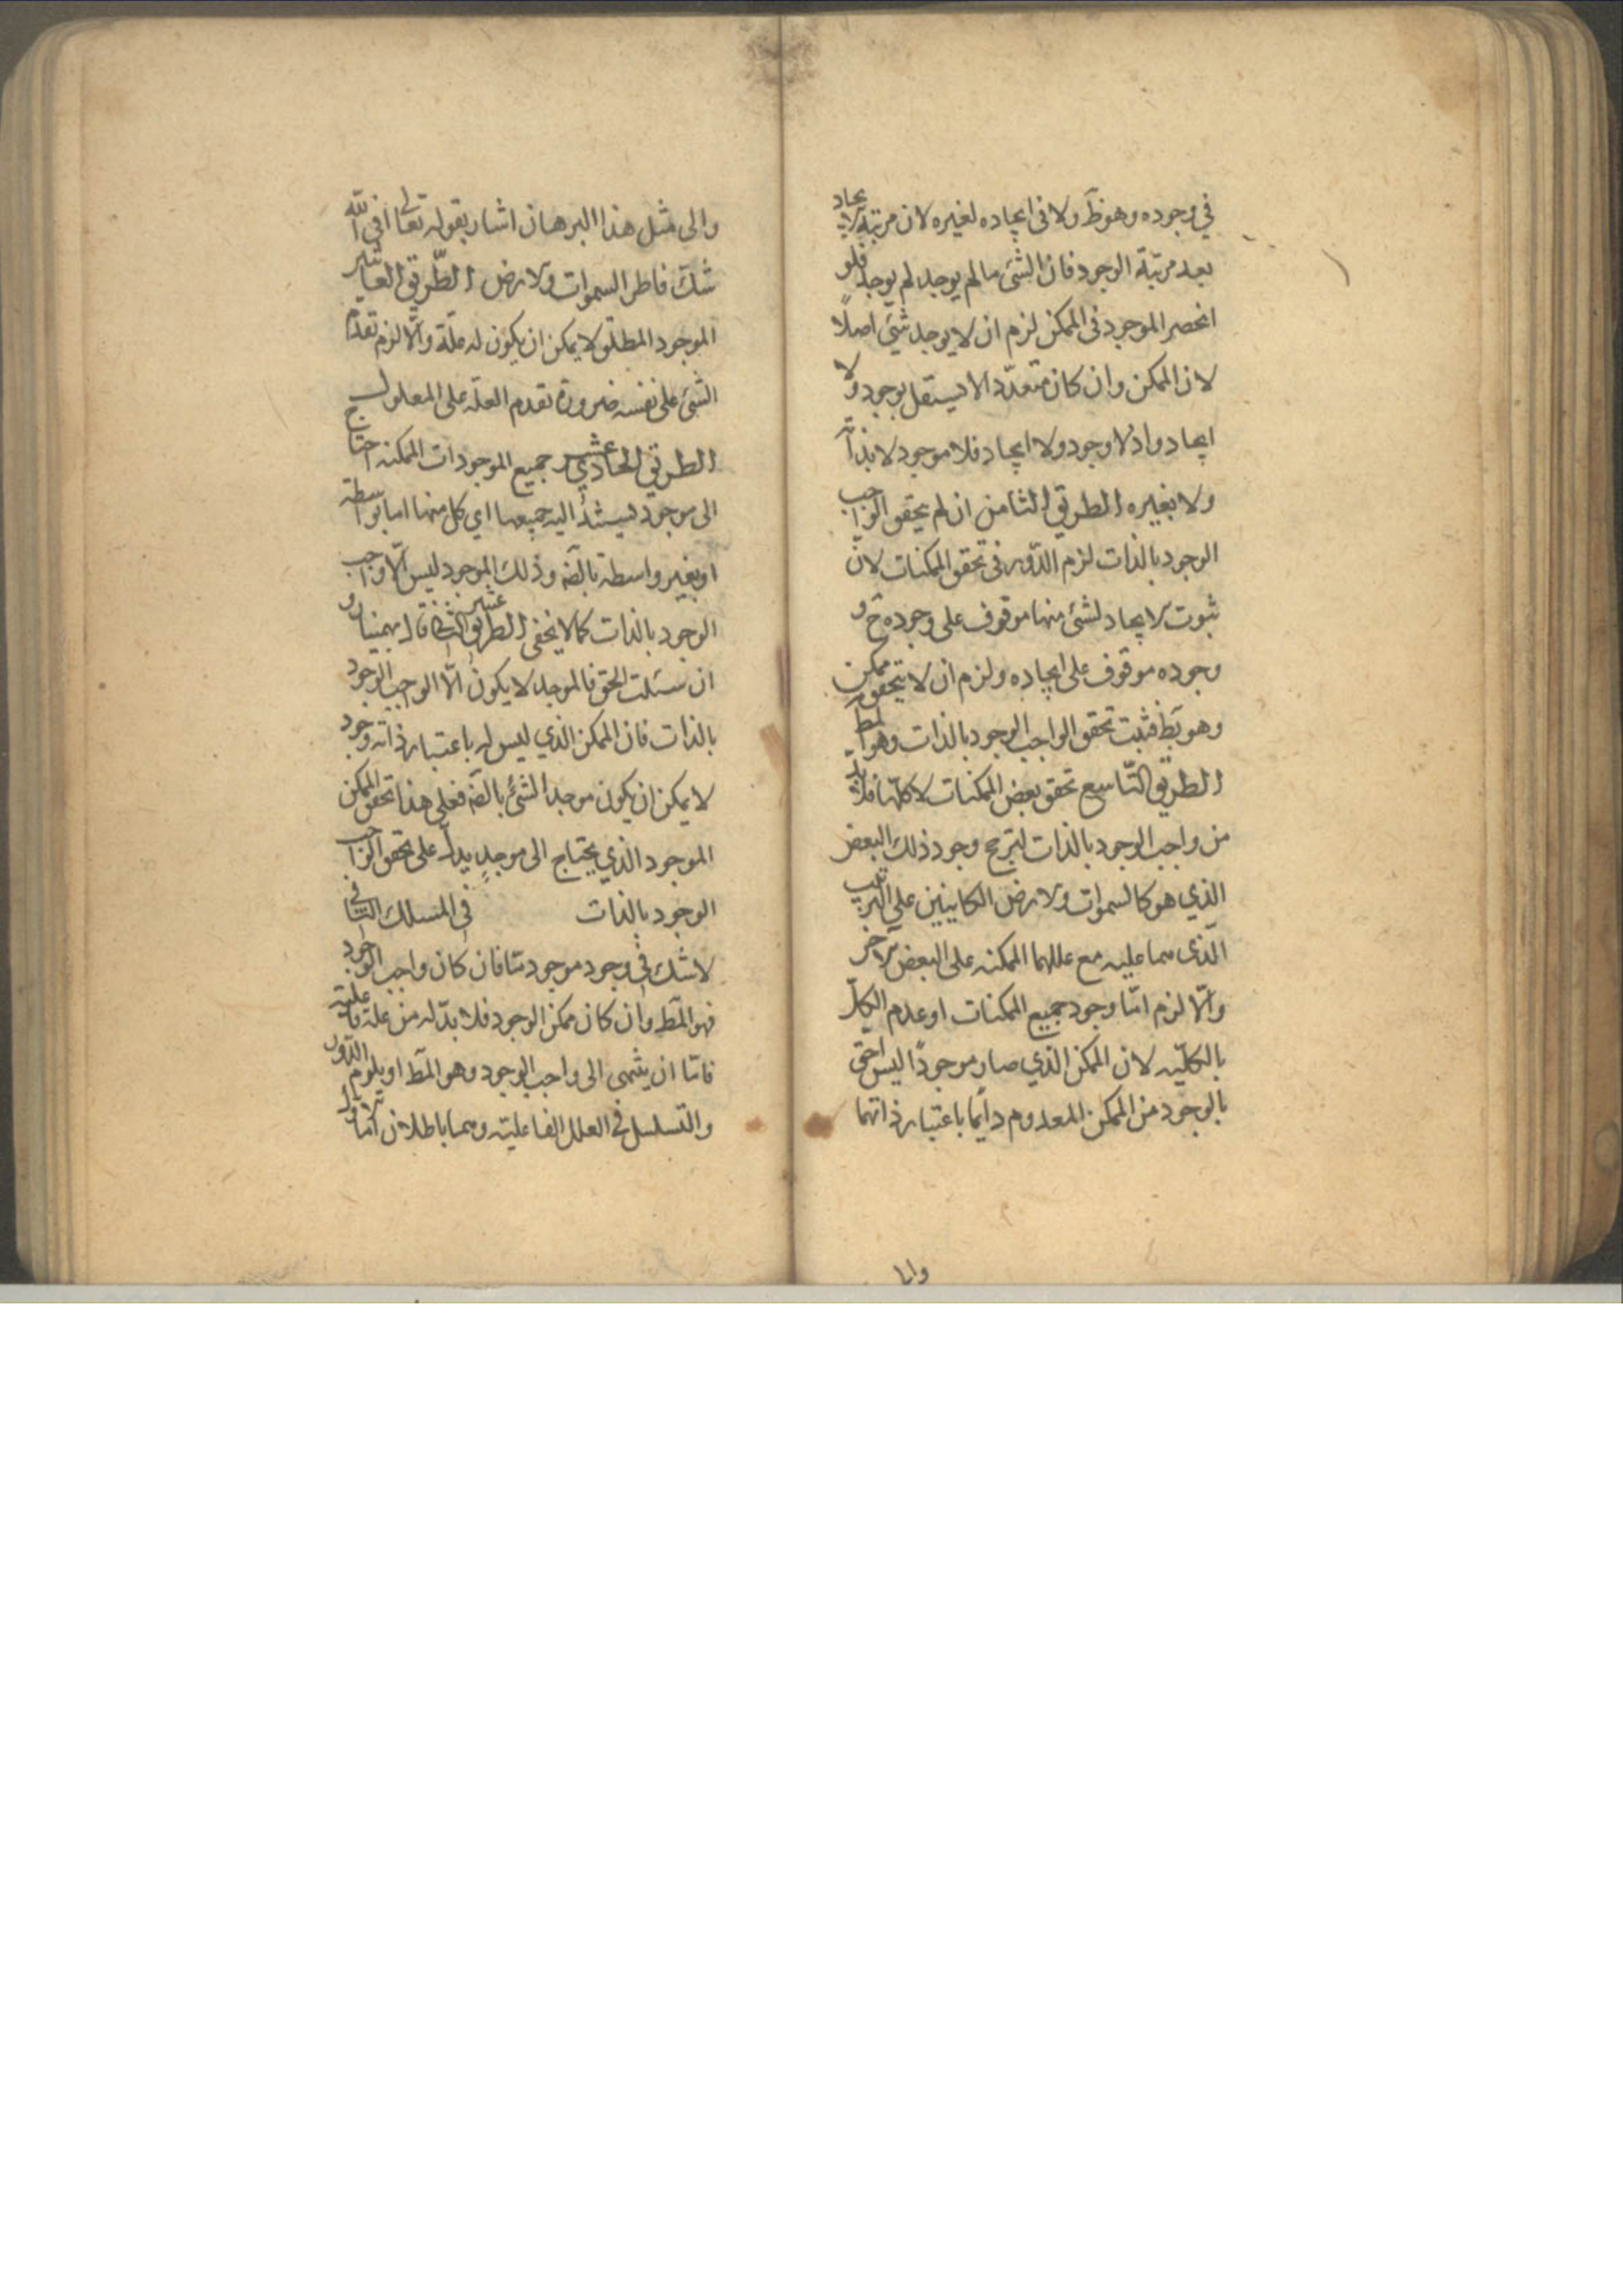 في وجوده وهو ظَ ولا في ايجاده لغيره لان مرتبة الايجاد
بعد مرتبة الوجود فان الشئ ما لم يوجد لم يوجد فلو
انحصر الموجود في الممكن لزم ان لا يوجد شئ اصلًا
لان الممكن وان كان متعدّدا لا يستقل بوجود ولا
ايجاد واذ لا وجود ولا ايجاد فلا موجود لا بذاته
ولا بغيره الطريق الثامن ان لم يتحقق الواجب
الوجود بالذات لزم الدّور في تحقق الممكنات لانّ
ثبوت الايجاد لشئ منها موقوف على وجوده ح و
وجوده موقوف على ايجاده ولزم ان لا يتحقق ممكن
وهو بَط فثبت تحقق الواجب الوجود بالذات وهو المط
الطريق التّاسع تحقق بعض الممكنات لا كلّها فلا بدّ
من واجب الوجود بالذات لترجح وجود ذلك البعض
الذي هو كالسموات والارض الكاينين على الترتيب
الّذى هما عليه مع عللهما الممكنه على البعض الاخر
والّا لزم امّا وجود جميع الممكنات او عدم الكلّ
بالكليّه لان الممكن الذي صار موجودًا ليس احق
بالوجود من الممكن المعدوم دايما باعتبار ذاتهما
وايا
والى مثل هذا البرهان اشار بقوله تعالى افي الله
شك فاطر السموات والارض الطّريق العاشر
الموجود المطلق لا يمكن ان يكون له علّة والّا لزم تقدّم
الشئ على نفسه ضرورة تقدم العلة على المعلول
الطريق الحادي عشر جميع الموجودات الممكنه احتاج
الى موجود يستند اليه جميعها اي كل منها اما بواسطة
او بغير واسطة بالضّه وذلك الموجود ليس الّا واجب
الوجود بالذات كما لا يخفى الطريق الثاني عشر قال بهمنيار و
ان سئلت الحق فالموجد لا يكون الّا الواجب الوجود
بالذات فان الممكن الذي ليس له باعتبار ذاته وجود
لا يمكن ان يكون موجد الشئ بالضّه فعلى هذا تحقق الممكن
الموجود الذي يحتاج الى موجدٍ يدلّ على تحقق الواجب
الوجود بالذات في المسلك الثاني
لا شك في وجود موجود مّا فان كان واجب الوجود
فهو المَط وان كان ممكن الوجود فلا بدّ له من علة فاعلية
فامّا ان ينتهى الى واجب الوجود وهو المَط او يلزم الدّور
والتّسلسل في العلل الفاعليّه وهما باطلان امّا الاول